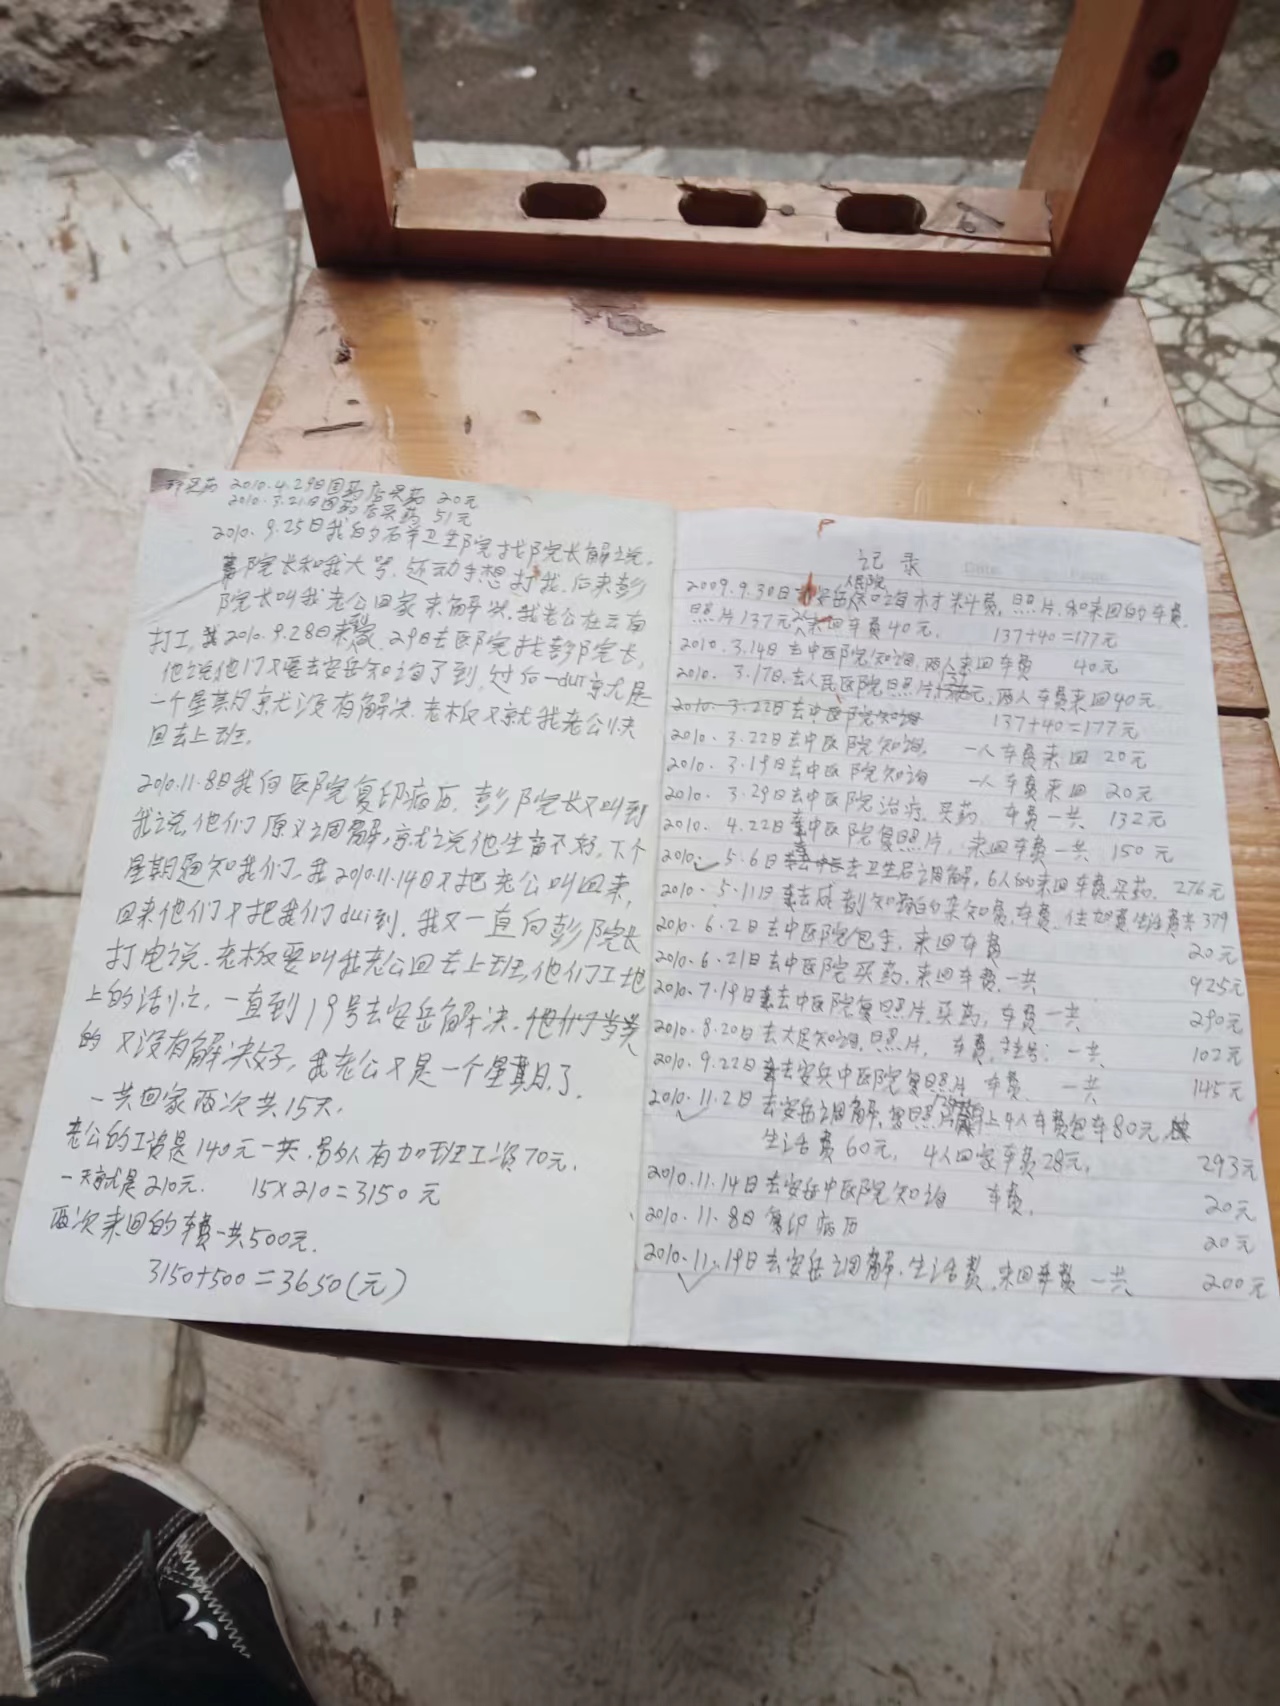 2010.4.29日国药店买药 20元
2010.3.21日国药店买药 51元
2010.9.25日我向石羊卫生院找院长解说,
院长和我大号,还动手想打我,后来彭
院长叫我老公回家来解决,我老公在云南
打工,我2010.9.28日来, 29日去医院找彭院长,
他说他们又要去安岳知询了到,过后一dui就是
一个星期就没有解决,老板又就我老公快
回去上班。
2010.11.8日我向医院复印病历,彭院长又叫到
我说,他们原又调解,就说他生苗不好,下个
星期通知我们,我2010.11.14日又把老公叫回来,
回来他们又把我们dui到,我又一直向彭院长
打电说,老板要叫我老公回去上班,他们工地
上的活忙,一直到19号去安岳解决,他们
的又没有解决好,我老公又是一个星期了。
一共回家两次共15天,
老公的工资是140元一共,另外有加班工资70元,
一天就是210元. 15×210=3150元
两次来回的车费一共500元,
3150+500=3650(元)
记录
人民院
2009.9.30日去安岳知询材料费,照片和来回的车费,
照片137元来回车费40元, 137+40=177元
2010.3.14日去中医院知询,两人来回车费 40元
2010.3.17日去人民医院照片137元,两人车费来回40元
2010.3.22日去中医院知询 137+40=177元
2010.3.22日去中医院知询, 一人车费来回 20元
2010.3.19日去中医院知询 一人车费来回 20元
2010.3.29日去中医院治疗,买药,车费一共 132元
2010.4.22日中医院复照片,来回车费一共 150元
2010.5.6日去卫生局调解,6人的来回车费,买药, 276元
2010.5.11日去成都知询的知费,车费,住宿费生活费共379
2010.6.2日去中医院包手,来回车费 20元
2010.6.21日去中医院买药,来回车费,一共 925元
2010.7.19日去中医院复照片,买药,车费一共 290元
2010.8.20日去大足知询,照片, 车费,挂号:一共 102元
2010.9.22日去安岳中医院复照片 车费 一共 145元
2010.11.2日去安岳调解,复照片上4人车费包车80元,
生活费60元, 4人回家车费28元, 293元
2010.11.14日去安岳中医院知询 车费, 20元
2010.11.8日复印病历 20元
2010.11.19日去安岳调解,生活费,来回车费一共 200元